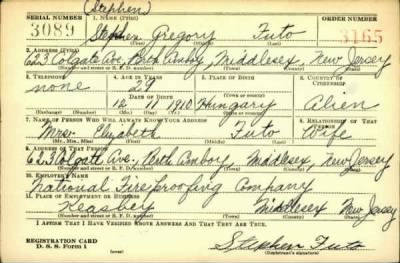 (Stephen)
SERIAL NUMBER 1. NAME (Print) ORDER NUMBER
3089 Stephen Gregory Futo 3165
(First) (Middle) (Last)
2. ADDRESS (Print)
623 Colgate Ave, Perth Amboy, Middlesex, New Jersey
(Number and street or R. F. D. number) (Town) (County) (State)
3. TELEPHONE 4. AGE IN YEARS 5. PLACE OF BIRTH 6. COUNTRY OF CITIZENSHIP
none 29
DATE OF BIRTH
12 11 1910 Hungary Alien
(Mo.) (Day) (Yr.) (State or country)
7. NAME OF PERSON WHO WILL ALWAYS KNOW YOUR ADDRESS 8. RELATIONSHIP OF THAT PERSON
Mrs. Elizabeth Futo Wife
(Mr., Mrs., Miss) (First) (Middle) (Last)
9. ADDRESS OF THAT PERSON
623 Colgate Ave., Perth Amboy, Middlesex, New Jersey
(Number and street or R. F. D. number) (Town) (County) (State)
10. EMPLOYER'S NAME
National Fireproofing Company
11. PLACE OF EMPLOYMENT OR BUSINESS
Keasbey Middlesex New Jersey
(Number and street or R. F. D. number) (Town) (County) (State)
I AFFIRM THAT I HAVE VERIFIED ABOVE ANSWERS AND THAT THEY ARE TRUE.
REGISTRATION CARD
D. S. S. Form 1 Stephen Futo
(Registrant's signature)